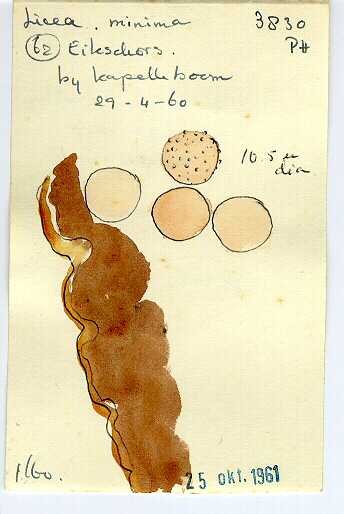 Licea. minima 3830
62 Eikschors. PH
by kapelleboom
29-4-60
10.5 µ
dia
1160.
25 okt. 1961